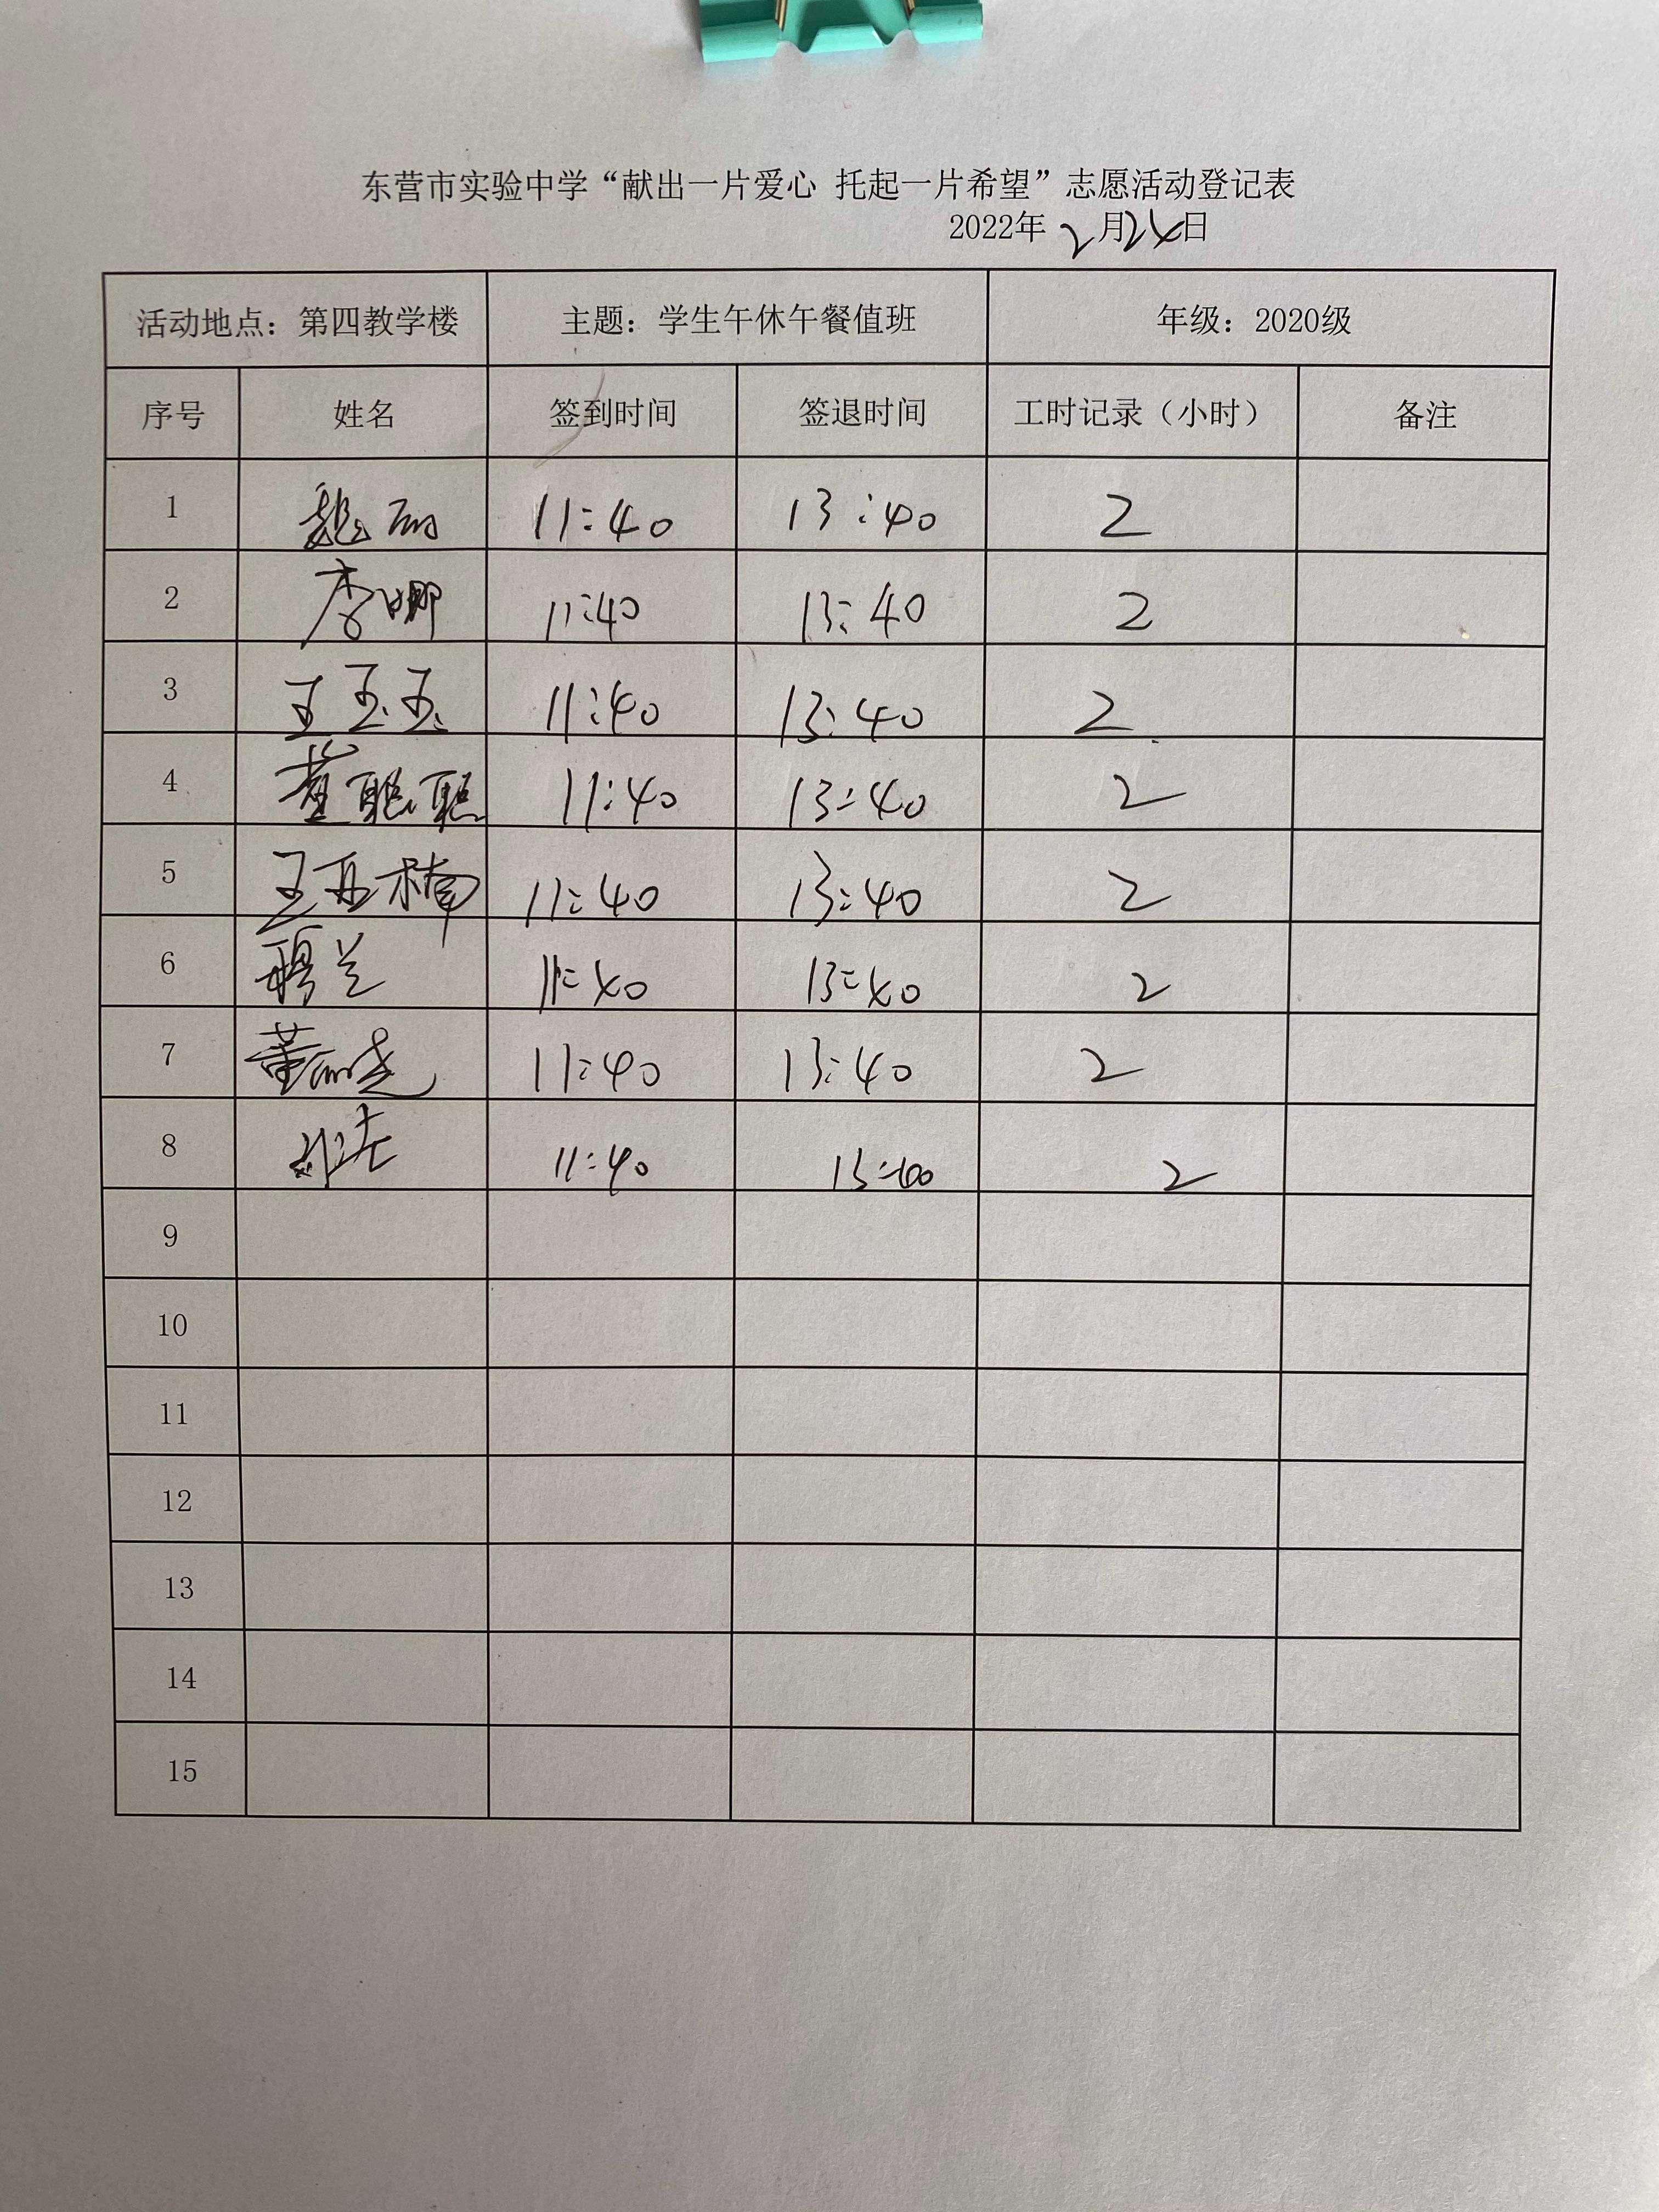 东营市实验中学“献出一片爱心 托起一片希望”志愿活动登记表
2022年 2月24日
活动地点：第四教学楼 主题：学生午休午餐值班 年级：2020级
序号 姓名 签到时间 签退时间 工时记录（小时） 备注
1 魏丽 11:40 13:40 2
2 李娜 11:40 13:40 2
3 王玉玉 11:40 13:40 2
4 董聪聪 11:40 13:40 2
5 王亚楠 11:40 13:40 2
6 穆兰 11:40 13:40 2
7 董 11:40 13:40 2
8 11:40 13:40 2
9
10
11
12
13
14
15